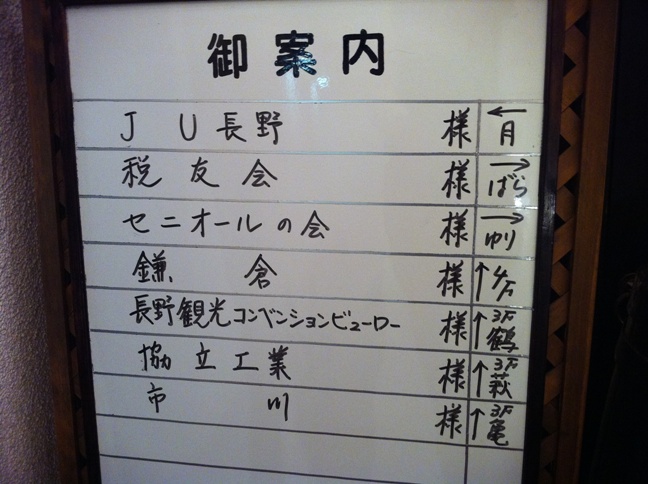 御案内
JU長野 様 ← 月
税友会 様 → ばら
セニオールの会 様 → ゆり
鎌倉 様 ↑ 4F
長野観光コンベンションビューロー 様 ↑ 3F 鶴
協立工業 様 ↑ 3F 萩
市川 様 ↑ 3F 亀